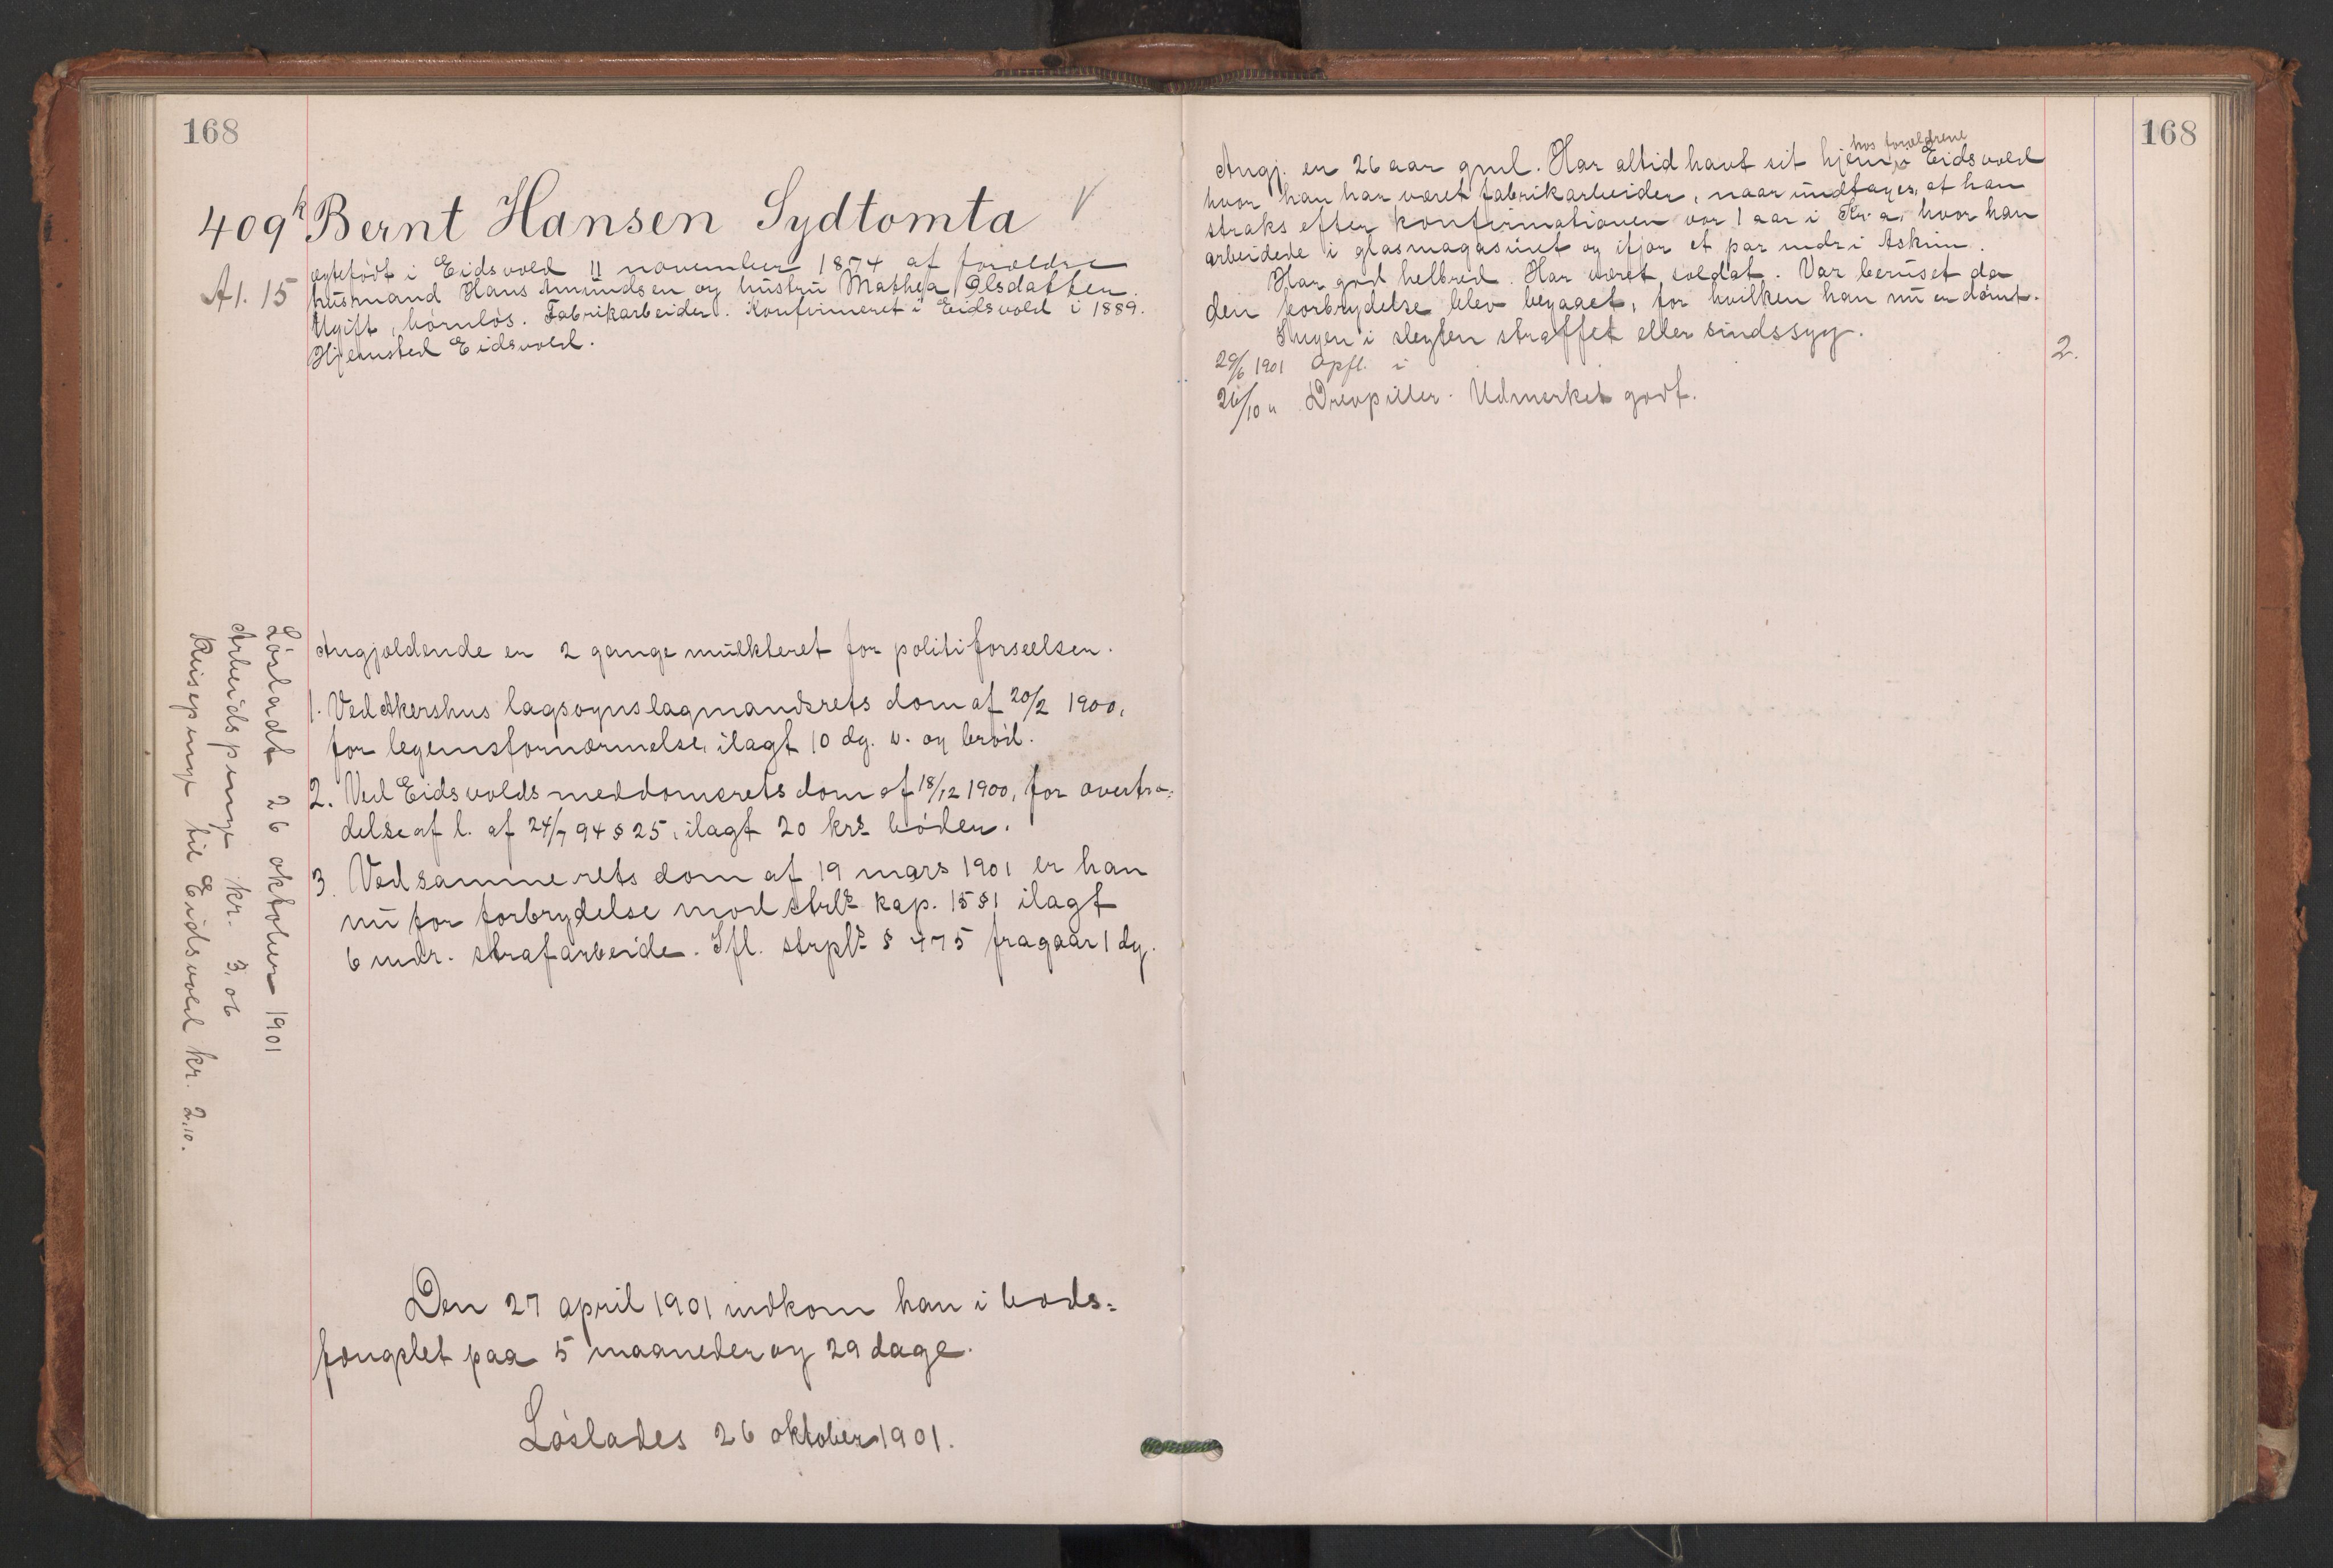 168
409 k Bernt Hansen Sydtomta V
A1. 15
egtefødt i Eidsvold 11 november 1874 af forældre
husmand Hans Amundsen og hustru Mathea Olsdatter.
Ugift, børnløs. Fabrikarbeider. Konfirmeret i Eidsvold i 1889.
Hjemsted Eidsvold.
Angjældende er 2 gange mulkteret for politiforseelser.
1. Ved Akershus lagsogns lagmandsrets dom af 20/2 1900,
for legemsfornærmelse, ilagt 10 dg. v. og brød.
2. Ved Eidsvolds meddomsrets dom af 18/12 1900, for overtræ=
delse af l. af 24/7 94 § 25, ilagt 20 krs bøder.
3. Ved samme rets dom af 19 mars 1901 er han
nu for forbrydelse mod strls kap. 15 § 1 ilagt
6 mdr. strafarbeide. Ifl. strpls § 475 fragaar 1 dg.
Den 27 april 1901 indkom han i bods=
fængslet paa 5 maaneder og 29 dage.
Løslades 26 oktober 1901.
Løsladt 26 oktober 1901
Arbeidspenge kr. 3,06
Reisepenge til Eidsvold kr. 2,10.
168
hos forældrene
Angj. er 26 aar gml. Har altid havt sit hjem i Eidsvold
hvor han har været fabrikarbeider, naar undtages, at han
straks efter konfirmationen var 1 aar i Kr.a. hvor han
arbeidede i glasmagasinet og ifjor et par mdr i Askim.
Har god helbred. Har været soldat. Var beruset da
den forbrydelse blev begaaet, for hvilken han nu er dømt.
Ingen i slegten straffet eller sindssyg.
29/6 1901 Opfl. i 2.
26/10 " Drevpiller. Udmerket godt.